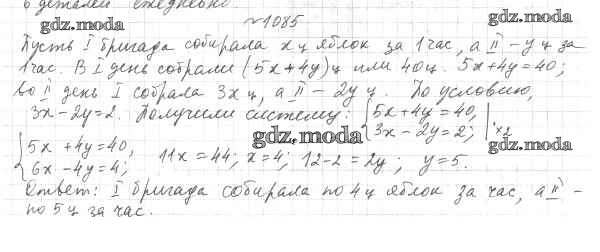 6 деталей ежедневно.
gdz.moda ~1085 gdz.moda
Пусть I бригада собирала x ц яблок за 1 час, а II - y ц за
1 час. В I день собрали (5x+4y) ц или 40 ц. 5x+4y=40;
Во II день I собрала 3x ц, а II - 2y ц. По условию,
3x-2y=2. Получили систему: {5x+4y=40,
3x-2y=2; | ×2
gdz.moda gdz.moda
{5x+4y=40,
6x-4y=4; 11x=44; x=4; 12-2=2y; y=5.
Ответ: I бригада собирала по 4 ц яблок за час, а II -
по 5 ц за час.